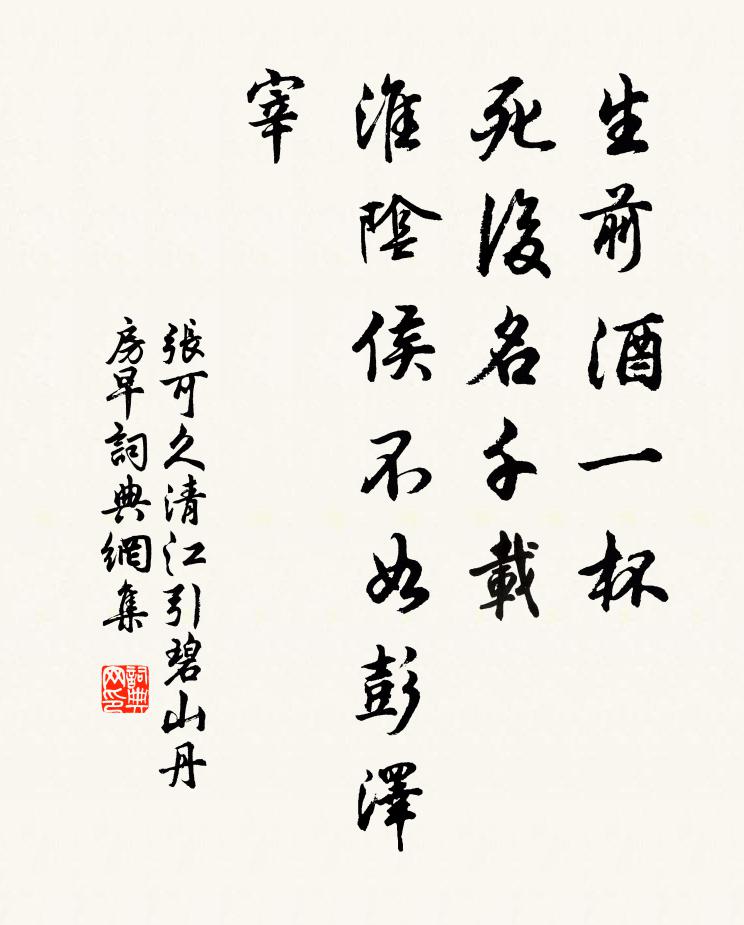 生前酒一杯
死後名千載
淮陰侯不如彭澤
宰
張可久清江引碧山丹
房早詞典網集
詞典
网印